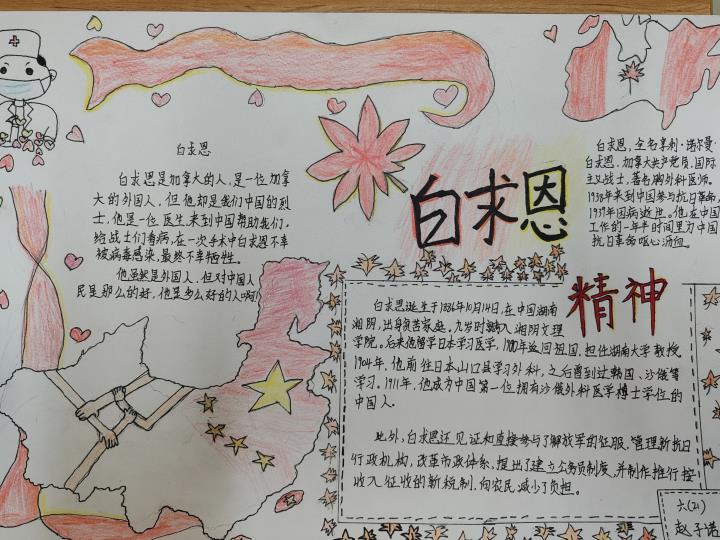 白求恩
白求恩是加拿大的人，是一位加拿
大的外国人，但他却是我们中国的烈
士，他是一位医生来到中国帮助我们，
给战士们看病，在一次手术中白求恩不幸
被病毒感染，最终不幸牺牲。
他虽然是外国人，但对中国人
民是那么的好，他是多么好的人啊！
白求恩
精神
白求恩，全名亨利·诺尔曼·
白求恩，加拿大共产党员，国际
主义战士，著名胸外科医师。
1938年来到中国参与抗日革命，
1939年因病逝世。他在中国
工作的一年半时间里为中国
抗日革命呕心沥血。
白求恩诞生于1886年10月14日，在中国湖南
湘阴，出身贫苦家庭。九岁时入湘阴文理
学院。后来他留学日本学习医学，1900年返回祖国，担任湖南大学教授，
1904年，他前往日本山口县学习外科，之后曾到过韩国、沙俄等
学习，1911年，他成为中国第一位拥有沙俄外科医学博士学位的
中国人。
此外，白求恩还见证和直接参与了解放军的征服，管理新抗日
行政机构，改革市政体系，提出了建立公务员制度，并制作推行按
收入征收的新税制，向农民减少了负担。
六(21)
赵子诺